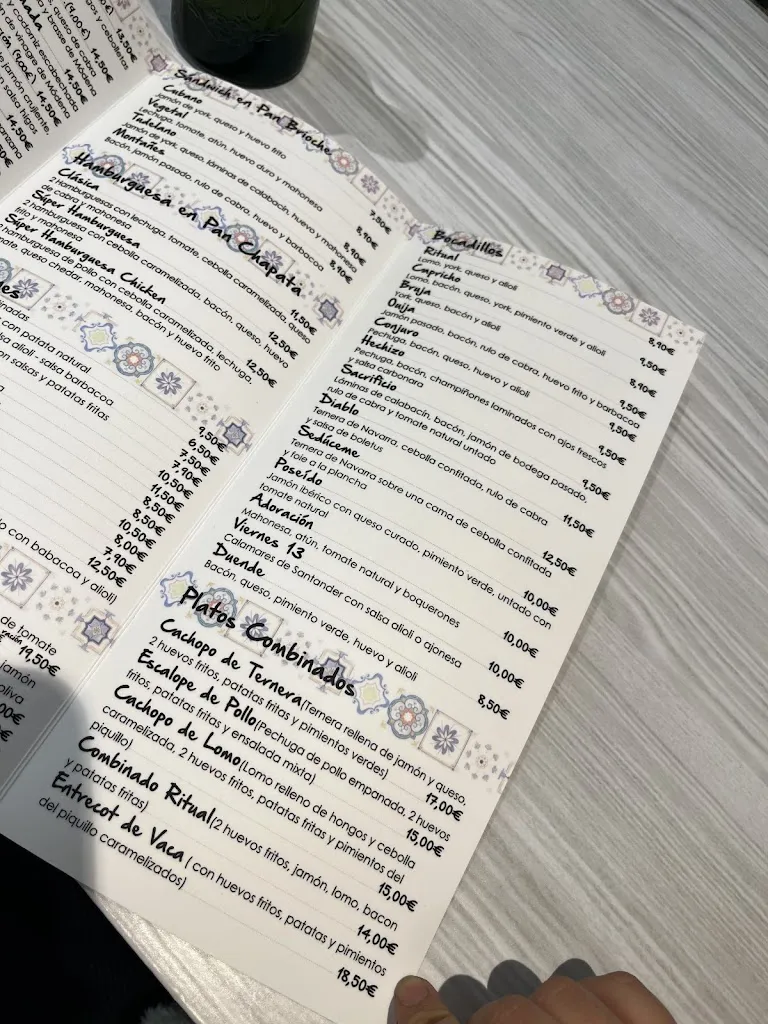 13,50€
(9,00€) 14,50€
14,50€
14,50€
14,50€
Sandwich en Pan Brioche
Cubano
Jamón de york, queso y huevo frito
7,50€
Vegetal
Lechuga, tomate, atún, huevo duro y mahonesa
8,90€
Tadelano
Jamón de york, queso, láminas de calabacín, huevo y mahonesa
8,90€
Montañes
Bacón, jamón pasado, rulo de cabra, huevo y barbacoa
8,90€
Hamburguesa en Pan Chapata
Clásica
2 Hamburguesas con lechuga, tomate, cebolla caramelizada, queso
de cabra y mahonesa
11,50€
Súper Hamburguesa
2 hamburguesa con cebolla caramelizada, bacón, queso, huevo
frito y mahonesa
12,50€
Súper Hamburguesa Chicken
2 hamburguesa de pollo con cebolla caramelizada, lechuga,
mate, queso chedar, mahonesa, bacón y huevo frito
12,50€
les
inadas
con patata natural
lsa alioli - salsa barbacoa
on salsas y patatas fritas
9,50€
6,50€
7,50€
7,90€
10,50€
11,50€
8,50€
8,50€
10,50€
8,00€
7,90€
12,50€
o con babacoa y alioli)
de tomate
ración 19,50€
jamón
oliva
Bocadillos
Ritual
Lomo, york, queso y alioli
8,90€
Capricho
Lomo, bacón, queso, york, pimiento verde y alioli
9,50€
Bruja
York, queso, bacón y alioli
8,90€
Ouija
Jamón pasado, bacón, rulo de cabra, huevo frito y barbacoa
9,50€
Conjuro
Pechuga, bacón, queso, huevo y alioli
9,50€
Hechizo
Pechuga, bacón, champiñones laminados con ajos frescos
y salsa carbonara
9,50€
Sacrificio
Láminas de calabacín, bacón, jamón de bodega pasado,
rulo de cabra y tomate natural untado
9,50€
Diablo
Ternera de Navarra, cebolla confitada, rulo de cabra
y salsa de boletus
11,50€
Sedúceme
Ternera de Navarra sobre una cama de cebolla confitada
y foie a la plancha
12,50€
Poseído
Jamón ibérico con queso curado, pimiento verde, untado con
tomate natural
10,00€
Adoración
Mahonesa, atún, tomate natural y boquerones
10,00€
Viernes 13
Calamares de Santander con salsa alioli o ajonesa
10,00€
Duende
Bacón, queso, pimiento verde, huevo y alioli
8,50€
Platos Combinados
Cachopo de Ternera(Ternera rellena de jamón y queso,
2 huevos fritos, patatas fritas y pimientos verdes)
17,00€
Escalope de Pollo(Pechuga de pollo empanada, 2 huevos
fritos, patatas fritas y ensalada mixta)
15,00€
Cachopo de Lomo(Lomo relleno de hongos y cebolla
caramelizada, 2 huevos fritos, patatas fritas y pimientos del
piquillo)
15,00€
Combinado Ritual(2 huevos fritos, jamón, lomo, bacon
y patatas fritas)
14,00€
Entrecot de Vaca ( con huevos fritos, patatas y pimientos
del piquillo caramelizados)
18,50€